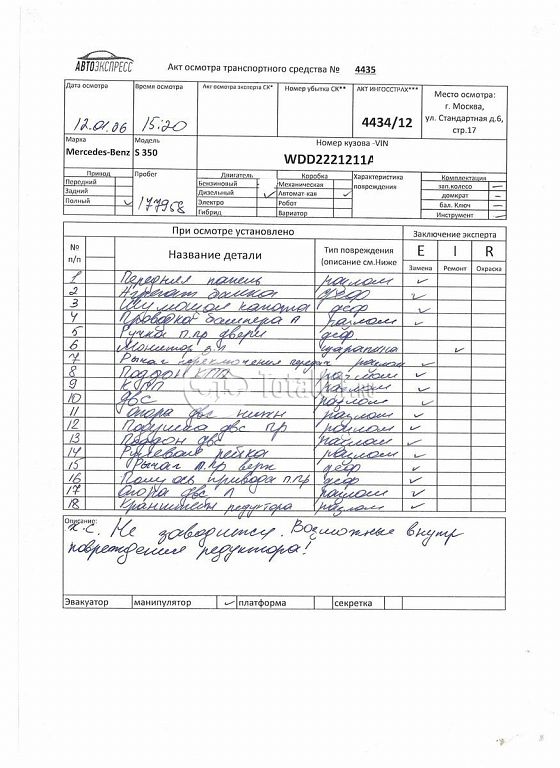 АВТОЭКСПРЕСС
Акт осмотра транспортного средства № 4435
Дата осмотра Время осмотра Акт осмотра эксперта СК* Номер убытка СК** АКТ ИНГОССТРАХ*** Место осмотра:
г. Москва,
12.01.06 15:20 4434/12 ул. Стандартная д.6,
стр.17
Марка Модель Номер кузова -VIN
Mercedes-Benz S 350 WDD2221211A
Привод Пробег Двигатель Коробка Характеристика повреждения Комплектация
Передний Бензиновый Механическая зап.колесо —
Задний Дизельный ✓ Автомат-кая ✓ домкрат —
Полный ✓ 177958 Электро Робот бал. Ключ —
Гибрид Вариатор Инструмент —
При осмотре установлено Заключение эксперта
№ п/п Название детали Тип повреждения (описание см.Ниже E I R
Замена Ремонт Окраска
1 Передняя панель разлом ✓
2 Агрегат замка деф ✓
3 капота деф ✓
4 Проводка бампера п разлом ✓
5 Ручка п.пр двери деф.
6 Монитор царапина ✓
7 Рычаг переключения передач разлом ✓
8 Поддон КПП разлом ✓
9 КПП разлом ✓
10 двс разлом ✓
11 Опора двс нижн разлом ✓
12 Подушка двс пр разлом ✓
13 Поддон двс разлом ✓
14 Рулевая рейка разлом ✓
15 Рычаг п.пр верх деф ✓
16 Полуось привода п.пр деф ✓
17 Опора двс л разлом ✓
18 Кранштейн редуктора разлом ✓
TotalCar.ru
Описание:
к.с. Не заводится. Возможные внутр
повреждения редуктора!
Эвакуатор манипулятор ✓ платформа секретка